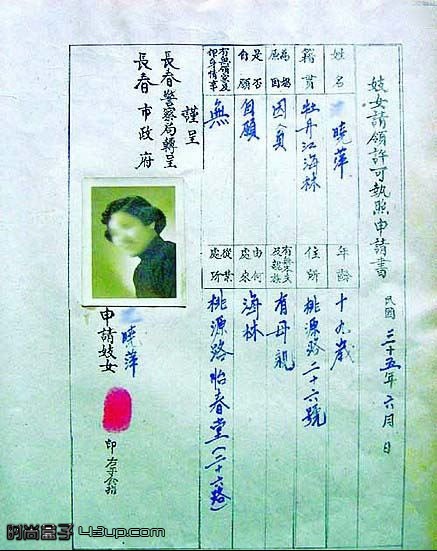 妓女請領許可執照申請書
民國三十五年六月 日
姓名 曉萍 年齡 十九歲
籍貫 牡丹江海林 住所 桃源路二十六號
為娼原因 因貧 有無本夫及親族 有母親
是否自願 自願 由何處來 海林
有無領家及 情事 無 從業處所 桃源路怡春堂(二十六路)
謹呈
長春警察局轉呈
長春市政府
申請妓女 曉萍
印
时尚盒子 43up.com